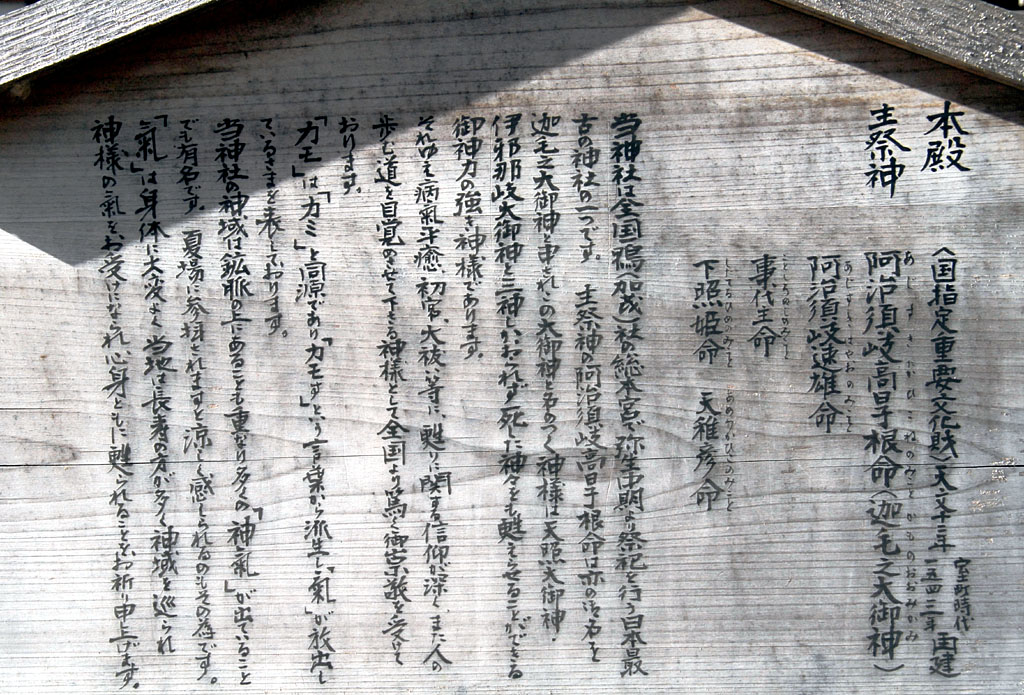 本殿
〈国指定重要文化財〉天文十二年 室町時代 一五四三年 再建
主祭神
阿治須岐高日子根命(迦毛之大御神)
あじすきたかひこねのみこと かものおおみかみ
阿治須岐速雄命
あじすきはやおのみこと
事代主命
ことしろぬしのみこと
下照姫命 天稚彦命
したてるひめのみこと あめのわかひこのみこと
当神社は全国鴨(加茂)社の総本宮で弥生中期より祭祀を行う日本最
古の神社の一つです。 主祭神の阿治須岐高日子根命は亦の御名を
迦毛之大御神と申されこの大御神と名のつく神様は天照大御神・
伊邪那岐大御神と三神しかおられず死した神々をも甦えらせることができる
御神力の強き神様であります。
それゆえ病氣平癒、初宮、大祓、等に甦りに関する信仰が深く、また人の
歩む道を自覚めさせて下さる神様として全国より篤く御崇敬を受けて
おります。
「カモ」は「カミ」と同源であり「カモす」という言葉から派生し「氣」が放出し
ているさまを表しております。
当神社の神域は鉱脈の上にあることも重なり多くの「神氣」が出ていること
でも有名です。 夏場に参拝されますと涼しく感じられるのもその為です。
「氣」は身体に大変よく当地は長寿の方が多く神域を巡られ
神様の氣をお受けになられ心身ともに甦られることをお祈り申上げます。